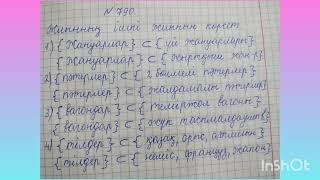 № 790.
Жиынның ішкі жиынын көрсет
1) {Жануарлар} ⊂ {үй жануарлары}
{Жануарлар} ⊂ {жыртқыш жан-р}
2) {пәтерлер} ⊂ {2 бөлмелі пәтерлер}
{пәтерлер} ⊂ {жалдамалы пәтерлер}
3) {вагондар} ⊂ {теміржол вагоны}
{вагондар} ⊂ {жүк
4) {тілдер} ⊂ {қазақ, орыс,
{тілдер} ⊂ {неміс, француз, жапон}
InShOt